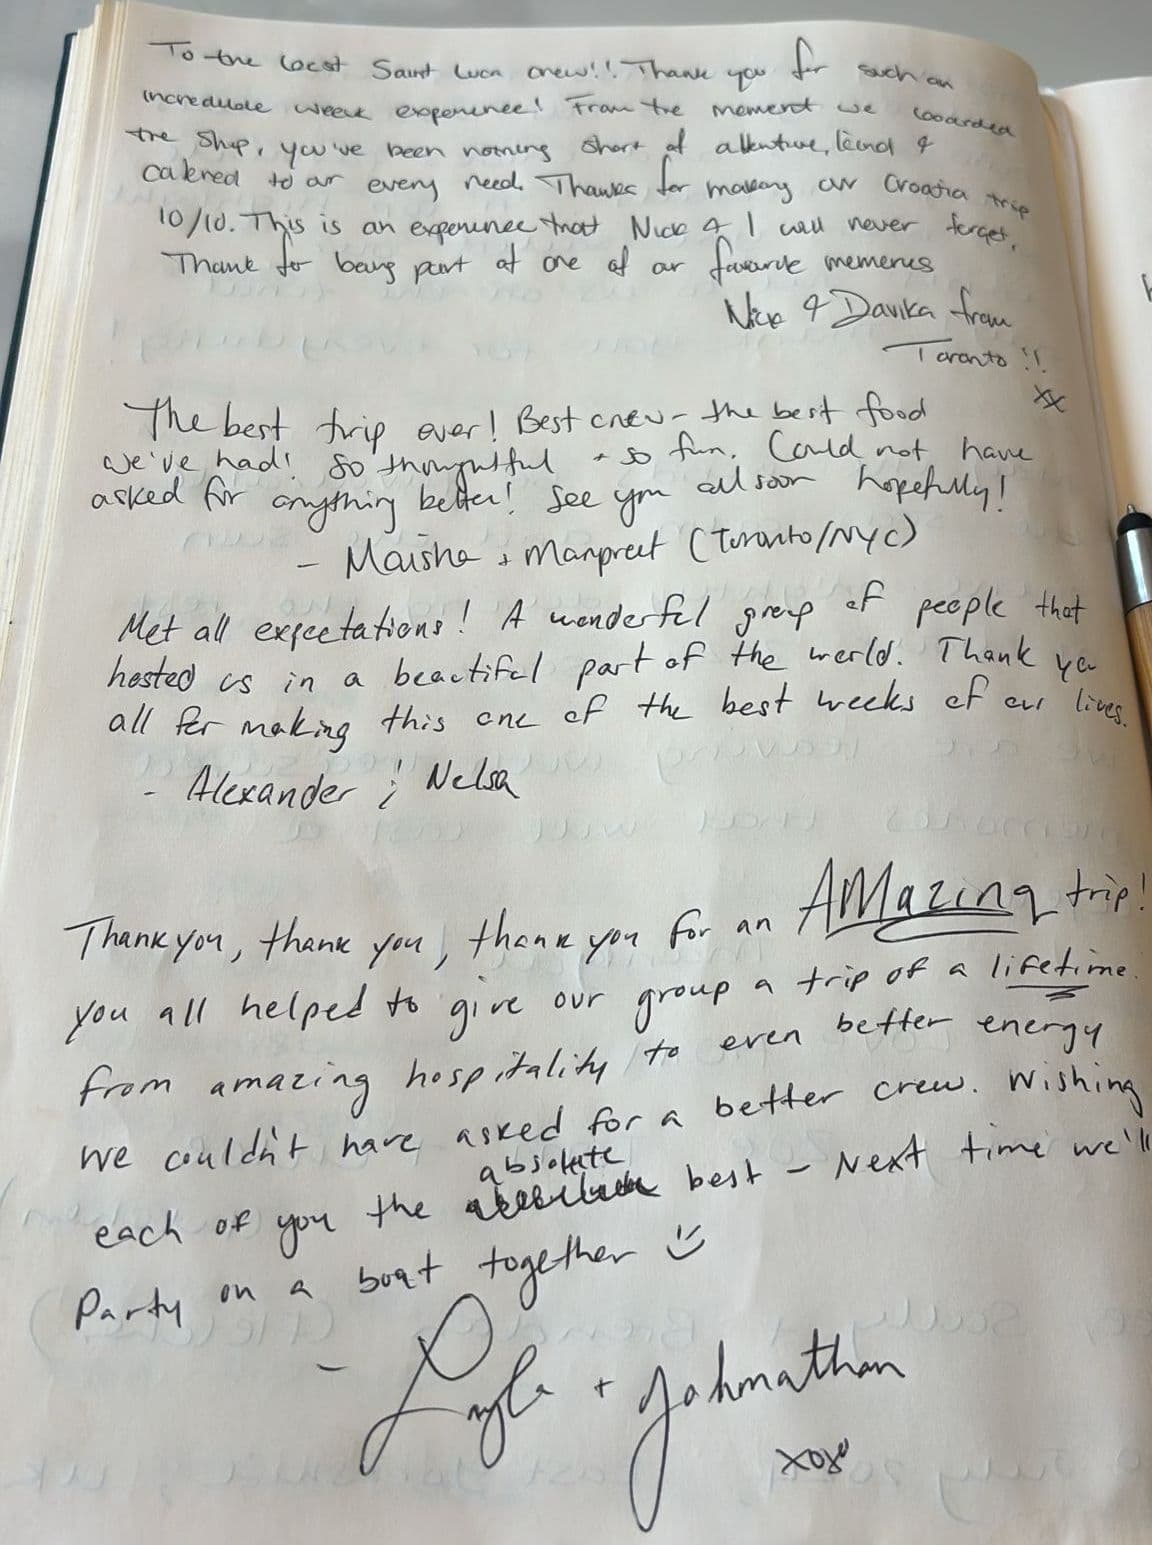 To the best Saint Luca crew!! Thank you for such an
incredible week experience! From the moment we boarded
the ship, you've been nothing short of attentive, kind &
catered to our every need. Thanks for making our Croatia trip
10/10. This is an experience that Nick & I will never forget.
Thank for being part of one of our favourite memories
Nick & Davika from
Toronto!!
xx
The best trip ever! Best crew - the best food
we've had! So thoughtful + so fun. Could not have
asked for anything better! See you all soon hopefully!
- Maisha + Manpreet (Toronto/NYC)
Met all expectations! A wonderful group of people that
hosted us in a beautiful part of the world. Thank you
all for making this one of the best weeks of our lives.
- Alexander & Nelsa
Thank you, thank you, thank you for an AMazing trip!
you all helped to give our group a trip of a lifetime.
from amazing hospitality to even better energy
we couldn't have asked for a better crew. Wishing
absolute
each of you the best - Next time we'll
Party on a boat together
- Layla + Johnathan
xoxo